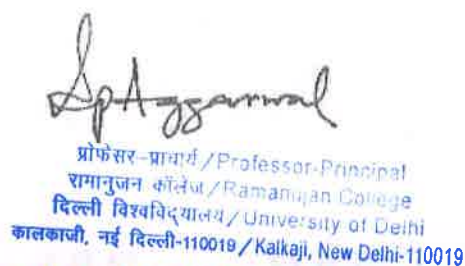 Sp Aggarwal
प्रोफेसर-प्राचार्य / Professor-Principal
रामानुजन कॉलेज / Ramanujan College
दिल्ली विश्वविद्यालय / University of Delhi
कालकाजी, नई दिल्ली-110019 / Kalkaji, New Delhi-110019